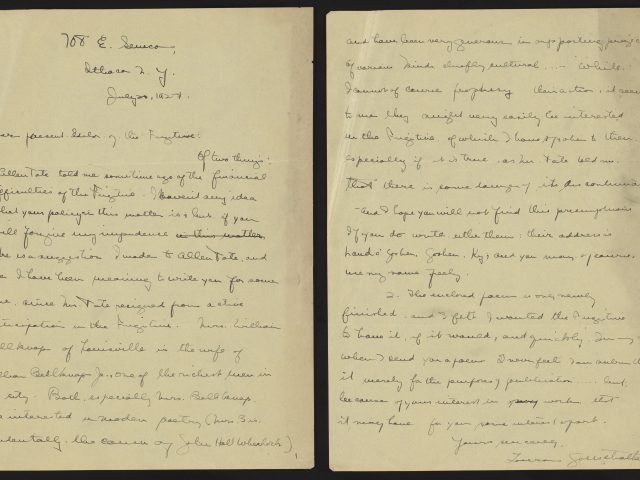 E. Seneca,
Ithaca N. Y.
July 20, 192
present Editor of the Fugitive:
Of two things:
Allen Tate told me sometime ago of the financial
difficulties of the Fugitive. I haven't any idea
what your policy in this matter is but if you
will forgive my impudence in this matter,
here is a suggestion I made to Allen Tate, and
I have been meaning to write you for some
since Mr. Tate resigned from active
participation in the Fugitive. Mrs. William
Belknap of Louisville is the wife of
William Belknap Jr., one of the richest men in
city. Both, especially Mrs. Belknap,
interested in modern poetry (Mrs. B is
incidentally, the cousin of John Hall Wheelock)
1
and have been very generous in supporting projects
of various kinds chiefly cultural .... While
I cannot of course prophesy their action, it seems
to me they might very easily be interested
in the Fugitive, of which I have spoken to them,
especially if it is true, as Mr. Tate told me,
that there is some danger of its discontinua
- and I hope you will not find this presumptuous
If you do write either them: their address is
Goshen, Ky; and you may of course
use my name freely.
2. The enclosed poem is only newly
finished, and I felt I wanted the Fugitive
to have it, if it would, and quickly.
when I send you a poem I never feel I am submit
it merely for the purpose of publication .... but,
because of your interest in my work, that
it may have for you some interest apart.
Yours sincerely,
Laura Gottschalk